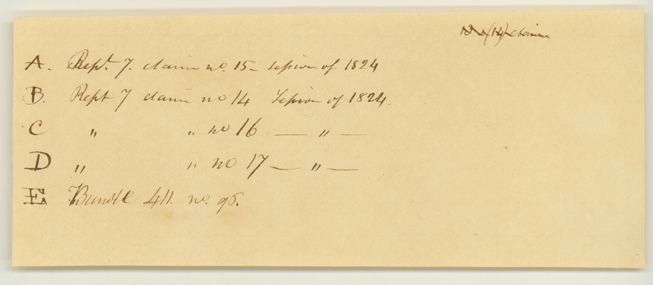 (14) claim
A. Rept. 7. claim no. 15 — Session of 1824
B. Rept 7 claim no 14 Session of 1824.
C „ „ no 16 — „ —
D „ „ no 17 — „ —
E Bundle 411. no. 98.